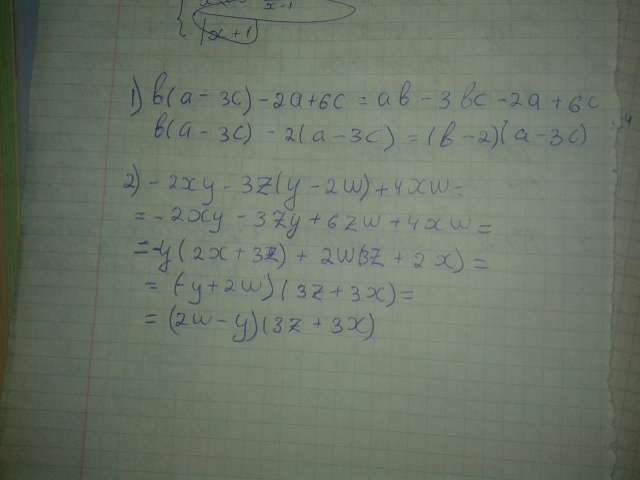 x-1
|x+1|
1) b(a-3c)-2a+6c = ab-3bc-2a+6c
b(a-3c)-2(a-3c) = (b-2)(a-3c)
2) -2xy-3z(y-2w)+4xw=
=-2xy-3zy+6zw+4xw=
=-y(2x+3z)+2w(3z+2x)=
=(-y+2w)(3z+3x)=
=(2w-y)(3z+3x)